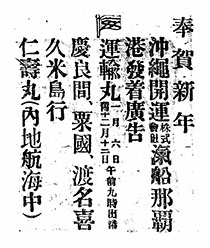 奉賀新年
沖繩開運株式會社汽船那覇
港發着廣告
運輸丸一月六日午前九時出港
舊十二月十二日
慶良間、粟國、渡名喜
久米島行
仁壽丸(內地航海中)